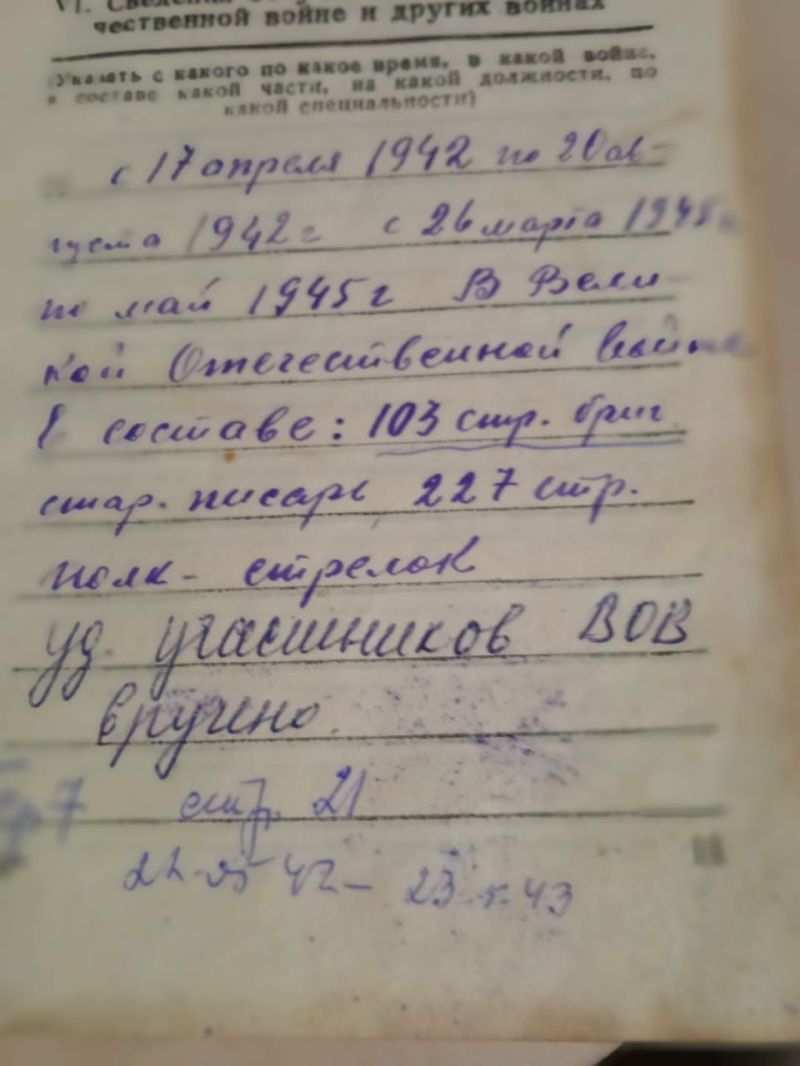 VI. Сведения
чественной войне и других войнах
(Указать с какого по какое время, в какой войне,
в составе какой части, на какой должности, по
какой специальности)
с 17 апреля 1942 по 20 ав-
густа 1942 г с 26 марта 1945 г
по май 1945 г В Вели-
кой Отечественной войне
В составе: 103 стр. бриг
стар. писарь 227 стр.
полк - стрелок
уд. участников ВОВ
вручено.
стр. 21
42 - 23 43